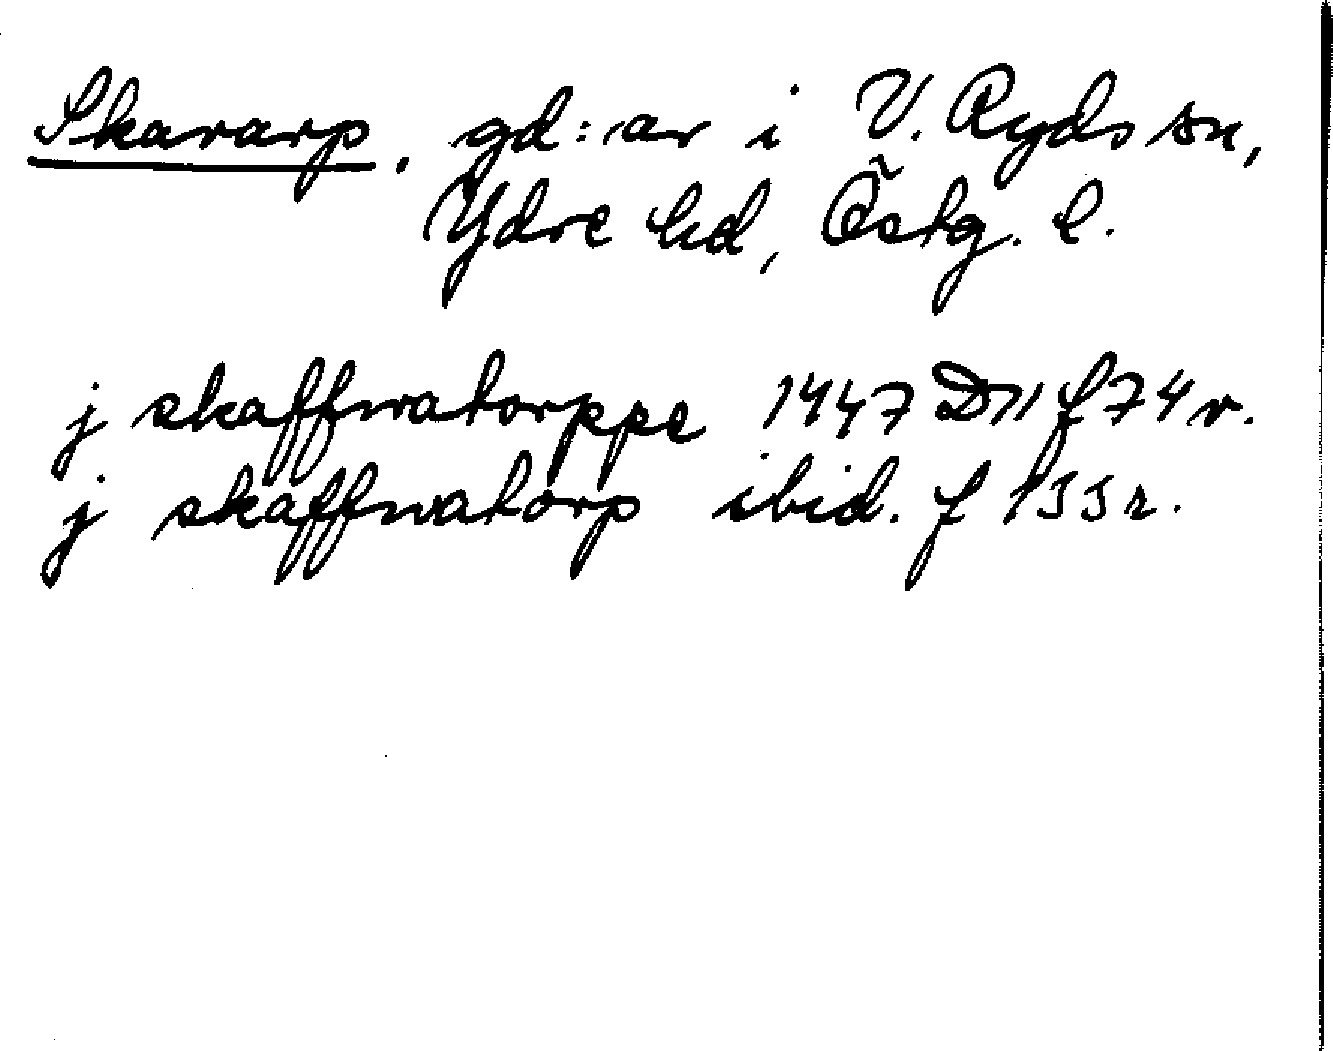 Skavarp, gd:ar i V. Ryds sn,
Ydre hd, Östg. l.
j skaffwatorppe 1447 D11 f 74 v.
j skaffwatorp ibid. f 155 r.